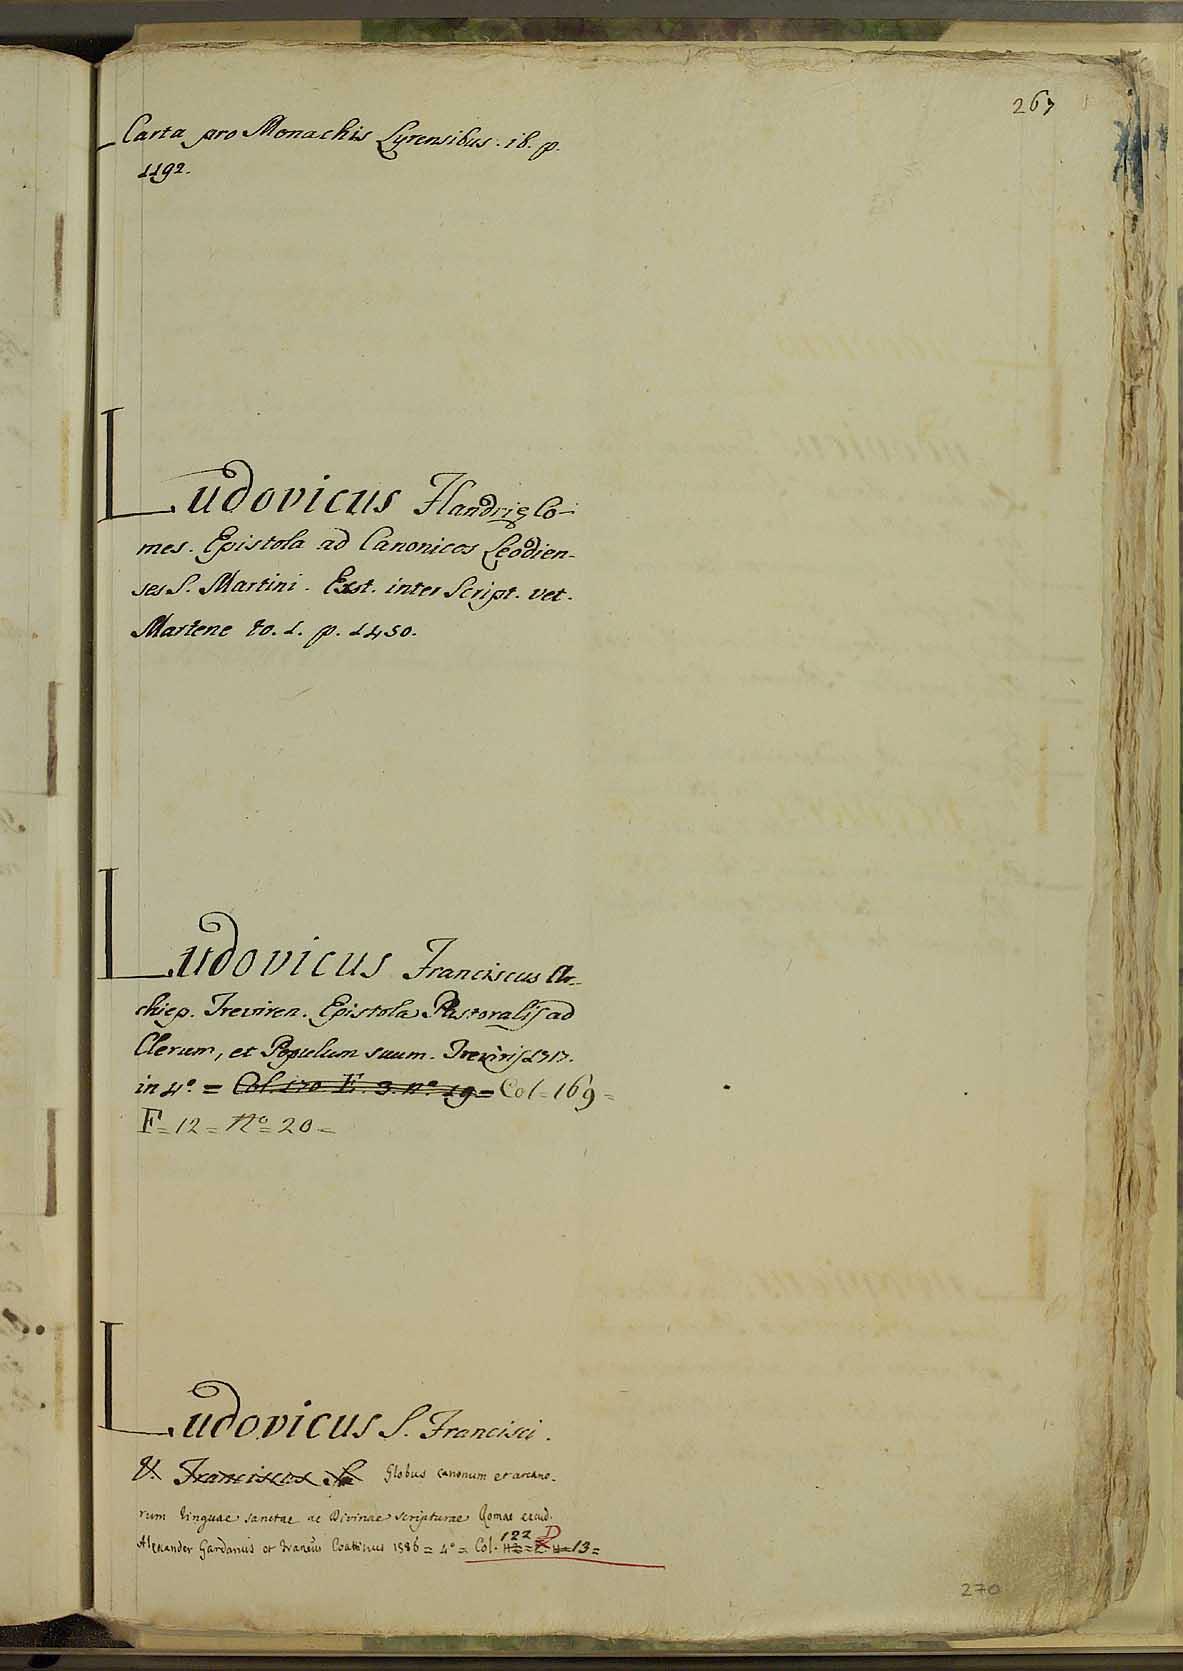 267
Carta pro Monachis Lyrensibus. ib. p.
1192.
Ludovicus Flandrię Co-
mes. Epistola ad Canonicos Leodien-
ses S. Martini. Exst. inter Script. vet.
Martene to. 1. p. 1450.
Ludovicus Franciscus Ar-
chiep. Treviren. Epistola Pastoralis ad
Clerum, et Populum suum. Treviris 1717.
in 4º. = Col. 170 E. 3. nº. 19 = Col = 169 =
F = 12 = Nº = 20 =
Ludovicus S. Francisci.
V. Franciscus Globus canonum et arcano-
rum linguae sanctae ac Divinae scripturae Romae excud.
122 D
Alexander Gardanus et Coattinus 1586 = 4º = Col. 13 =
270